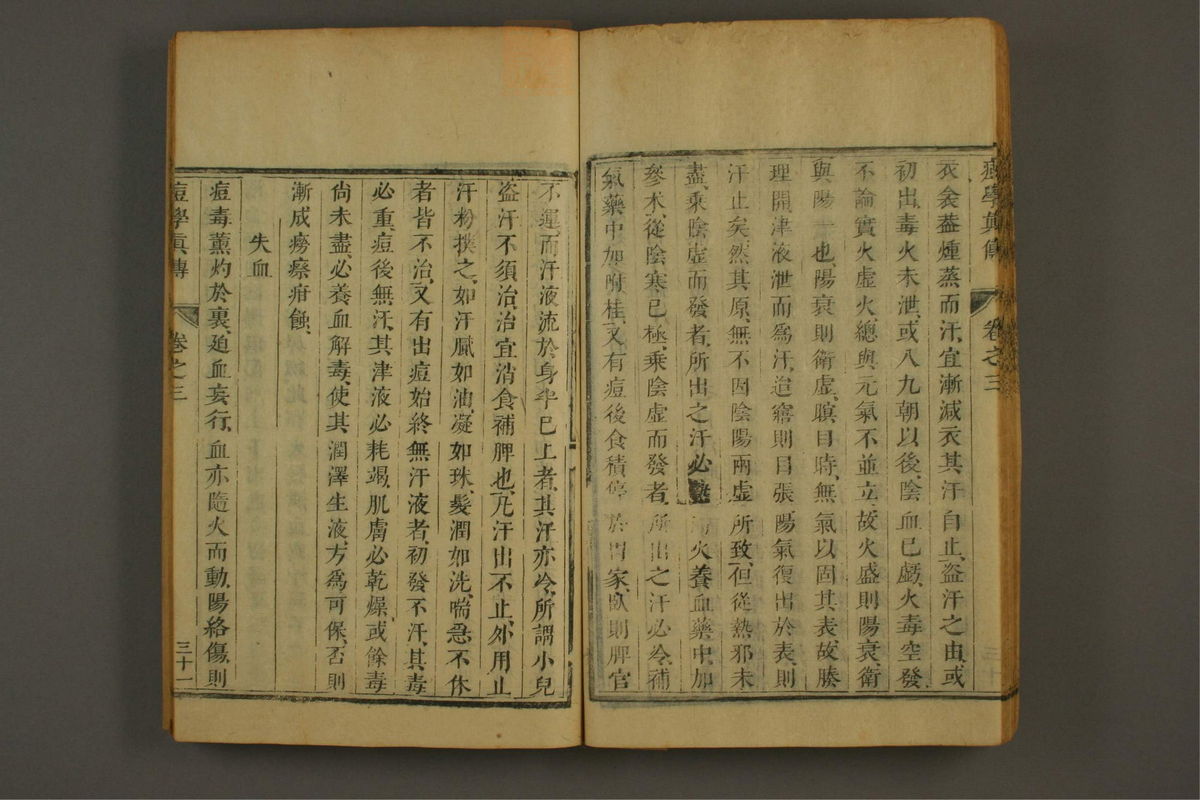 痘學真傳 卷之三
衣衾蓋煙蒸而汗、宜漸減衣、其汗自止、盜汗之由、或
初出、毒火未泄、或八九朝以後、陰血已虧、火毒空發、
不論實火虛火、總與元氣不並立、故火盛則陽衰、衛
與陽一也、陽衰則衛虛、瞑目時、無氣以固其表、故腠
理開、津液泄而爲汗、迨寤則目張、陽氣復出於表、則
汗止矣、然其原、無不因陰陽兩虛所致、但從熱邪未
盡、乘陰虛而發者、所出之汗必熱、火養血藥中、加
參朮、從陰寒已極、乘陰虛而發者、所出之汗必冷、補
氣藥中加附桂、又有痘後食積停於胃家、臥則脾官
不運、而汗液流於身半已上者、其汗亦冷、所謂小兒
盜汗不須治、治宜消食補脾也、凡汗出不止、外用止
汗粉撲之、如汗膩如油、凝如珠、髮潤如洗、喘急不休
者、皆不治、又有出痘始終無汗液者、初發不汗、其毒
必重、痘後無汗、其津液必耗竭、肌膚必乾燥、或餘毒
尚未盡、必養血解毒、使其潤澤生液、方爲可保、否則
漸成癆瘵疳蝕、
失血
痘毒薰灼於裏、迫血妄行、血亦隨火而動、陽絡傷、則
痘學真傳 卷之三 三十一